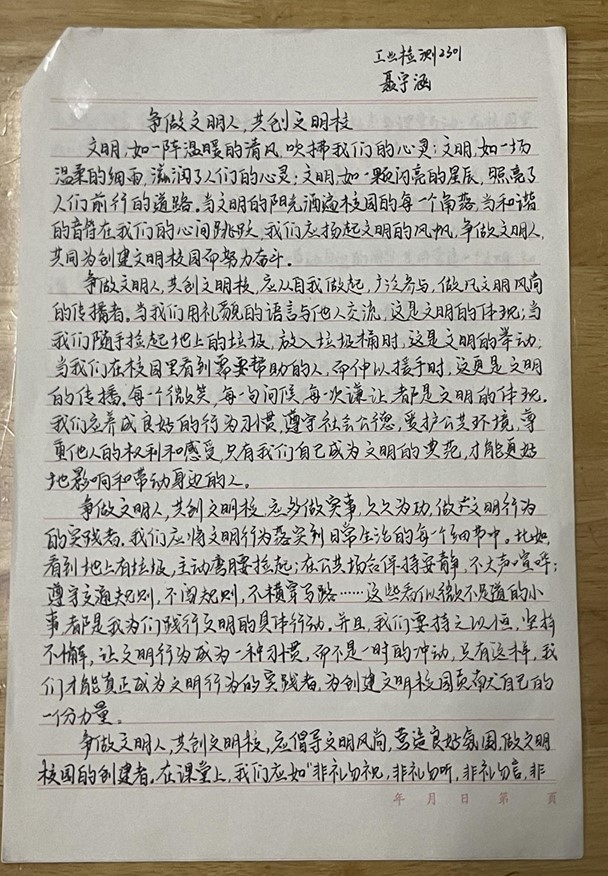 工业检测2301
聂宇涵
争做文明人,共创文明校
文明,如一阵温暖的清风,吹拂我们的心灵;文明,如一场
温柔的细雨,滋润了人们的心灵;文明,如一颗闪亮的星辰,照亮了
人们前行的道路。当文明的阳光洒遍校园的每一个角落,当和谐
的音符在我们的心间跳跃,我们应扬起文明的风帆,争做文明人,
共同为创建文明校园而努力奋斗。
争做文明人,共创文明校,应从自我做起,广泛参与,做凡文明风尚
的传播者。当我们用礼貌的语言与他人交流,这是文明的体现;当
我们随手捡起地上的垃圾,放入垃圾桶时,这是文明的举动;
当我们在校园里看到需要帮助的人,而伸以援手时,这更是文明
的传播。每一个微笑,每一句问候,每一次谦让,都是文明的体现。
我们应养成良好的行为习惯,遵守社会公德,爱护公共环境,尊
重他人的权利和感受,只有我们自己成为文明的典范,才能更好
地影响和带动身边的人。
争做文明人,共创文明校,应多做实事,久久为功,做文明行为
的实践者。我们应将文明行为落实到日常生活的每一个细节中。比如,
看到地上有垃圾,主动弯腰捡起;在公共场合保持安静,不大声喧哗;
遵守交通规则,不闯规则,不横穿马路……这些看似微不足道的小
事,都是我为们践行文明的具体行动。并且,我们要持之以恒,坚持
不懈,让文明行为成为一种习惯,而不是一时的冲动,只有这样,我
们才能真正成为文明行为的实践者,为创建文明校园贡献自己的
一份力量。
争做文明人,共创文明校,应倡导文明风尚,营造良好氛围,做文明
校园的创建者。在课堂上,我们应如"非礼勿视,非礼勿听,非礼勿言,非
年 月 日 第 頁